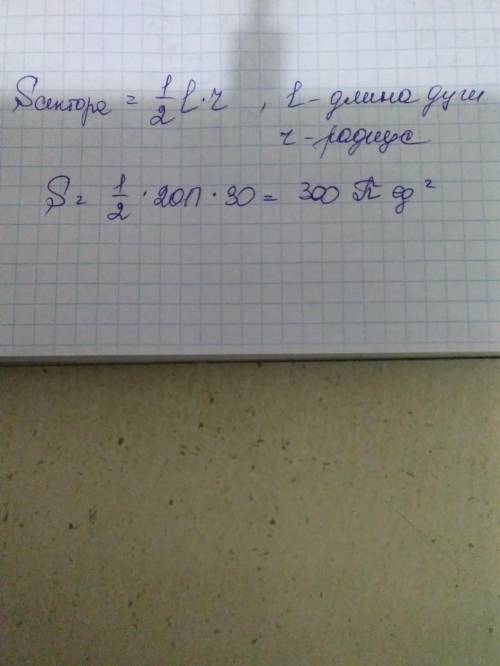 Sсектора = 1/2 l·r , l - длина дуги
r - радиус
S = 1/2 · 20π · 30 = 300 π ед²